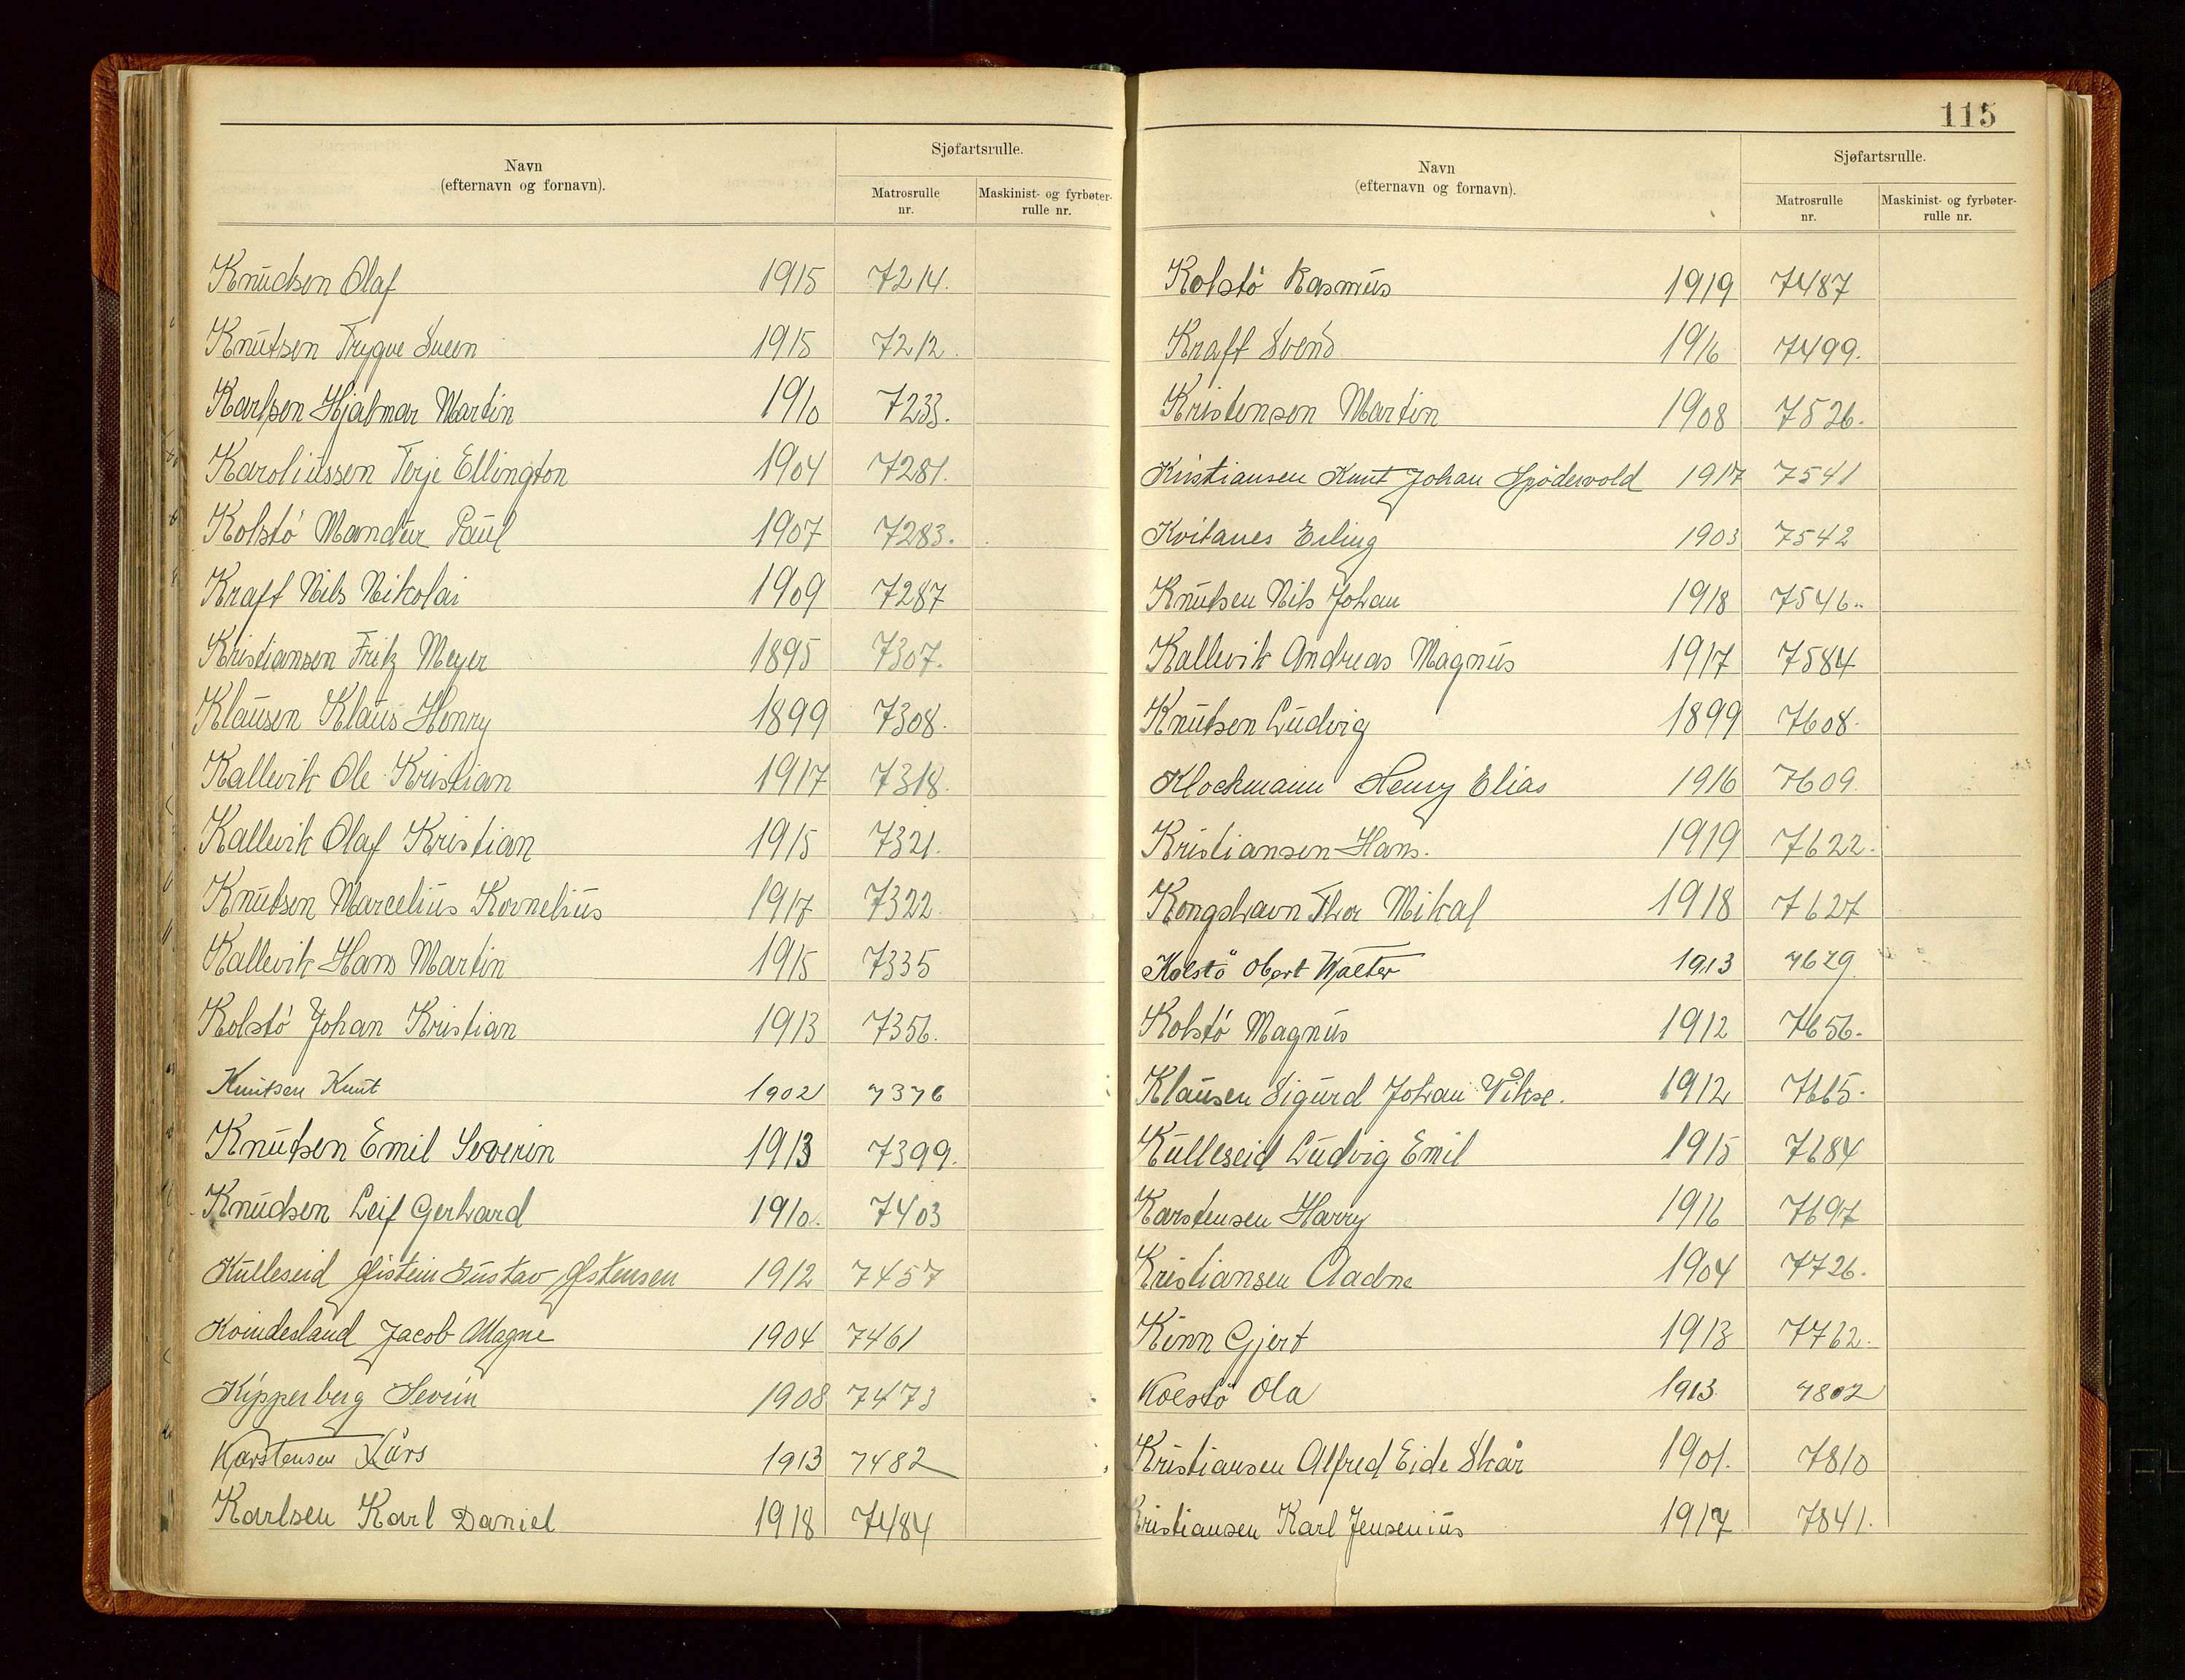 Navn
(efternavn og fornavn).
Sjøfartsrulle.
Matrosrulle nr.
Maskinist- og fyrbøter-rulle nr.
Knudsen Olaf 1915 7214.
Knutsen Trygve Sveen 1915 7212.
Karlsen Hjalmar Martin 1910 7233.
Karoliussen Terje Ellington 1904 7281.
Kolstö Mandur Paul 1907 7283.
Kraft Nils Nikolai 1909 7287
Kristiansen Fritz Meyer 1895 7307.
Klausen Klaus Henry 1899 7308.
Kallevik Ole Kristian 1917 7318.
Kallevik Olaf Kristian 1915 7321.
Knutsen Marcelius Kornelius 1917 7322.
Kallevik Hans Martin 1915 7335
Kolstö Johan Kristian 1913 7356.
Knutsen Knut 1902 7376
Knutsen Emil Severin 1913 7399.
Knudsen Leif Gerhard 1910. 7403
Kulleseid Øistein Gustav Østensen 1912 7457
Kvindesland Jacob Magne 1904 7461
Kipperberg Severin 1908 7473
Karstensen Lars 1913 7482
Karlsen Karl Daniel 1918 7484
115
Navn
(efternavn og fornavn).
Sjøfartsrulle.
Matrosrulle nr.
Maskinist- og fyrbøter-rulle nr.
Kolstö Rasmus 1919 7487
Kraft Svend 1916 7499.
Kristensen Martin 1908 7526.
Kristiansen Knut Johan Spödervold 1917 7541
Kvitanes Erling 1903 7542
Knutsen Nils Johan 1918 7546.
Kallevik Andreas Magnus 1917 7584
Knutsen Ludvig 1899 7608.
Klockmann Henry Elias 1916 7609.
Kristiansen Hans. 1919 7622.
Kongshavn Thor Mikal 1918 7627
Kolstö Obert Walter 1913 7629
Kolstö Magnus 1912 7656.
Klausen Sigurd Johan Vikse. 1912 7665.
Kulleseid Ludvig Emil 1915 7684
Karstensen Harry 1916 7697
Kristiansen Aadne 1904 7726.
Kinn Gjert 1913 7762.
Kolstö Ola 1913 7802
Kristiansen Alfred Eide Skår 1901. 7810
Kristiansen Karl Jensenius 1917 7841.